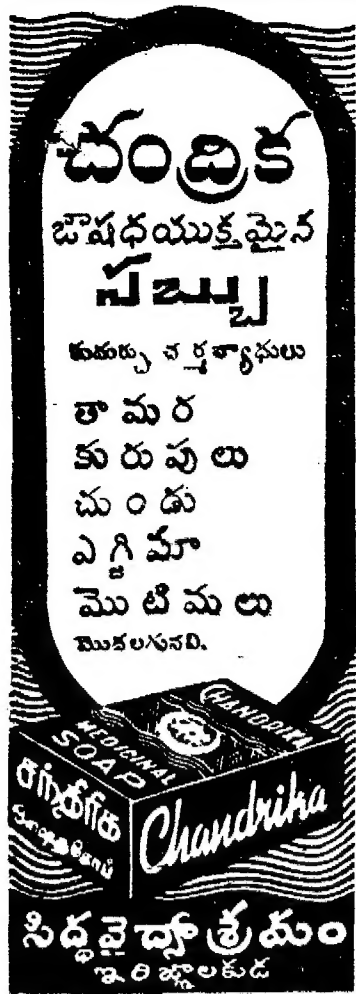 చంద్రిక
ఔషధయుక్తమైన
సబ్బు
కుదుర్చు చర్మవ్యాధులు
తామర
కురుపులు
చుండు
ఎగ్జిమా
మొటిమలు
మొదలగునవి.
CHANDRIKA
MEDICINAL
SOAP
Chandrika
సిద్ధవైద్యాశ్రమం
ఇరిఙ్ఞాలకుడ